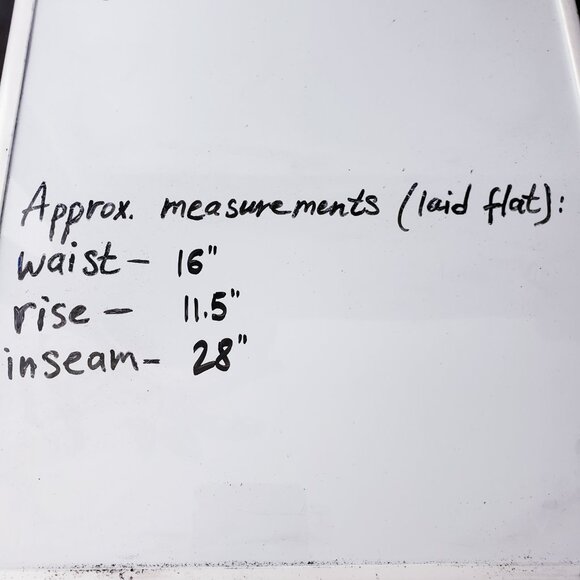 Approx. measurements (laid flat):
waist- 16"
rise - 11.5"
inseam- 28"